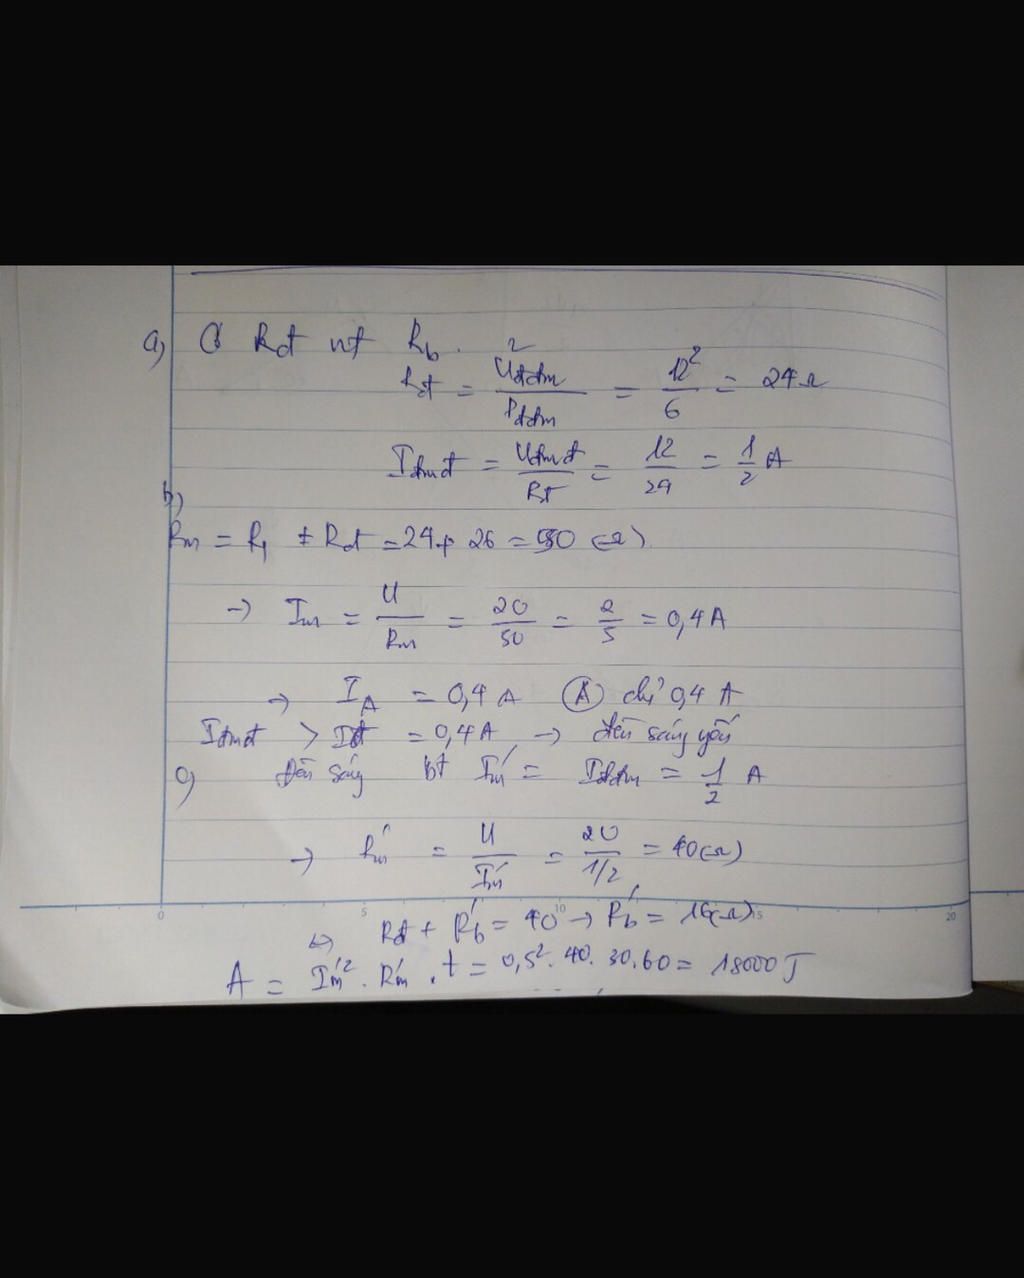 a) Rđ nt Rb.
Rđ = U²đđm / Pđđm = 12² / 6 = 24 Ω
Iđmđ = Uđmđ / Rđ = 12 / 24 = 1/2 A
b)
Rm = R1 + Rđ = 24 + 26 = 50 (Ω)
→ Im = U / Rm = 20 / 50 = 2 / 5 = 0,4 A
→ IA = 0,4 A (A) chỉ 0,4 A
Iđmđ > Iđ = 0,4 A → đèn sáng yếu
c) Đèn sáng bt Im' = Iđđm = 1/2 A
→ Rm' = U / Im' = 20 / 1/2 = 40 (Ω)
⇔ Rđ + Rb' = 40 → Rb' = 16 (Ω)
A = Im'² . Rm' . t = 0,5² . 40 . 30 . 60 = 18000 J
0 5 10 15 20